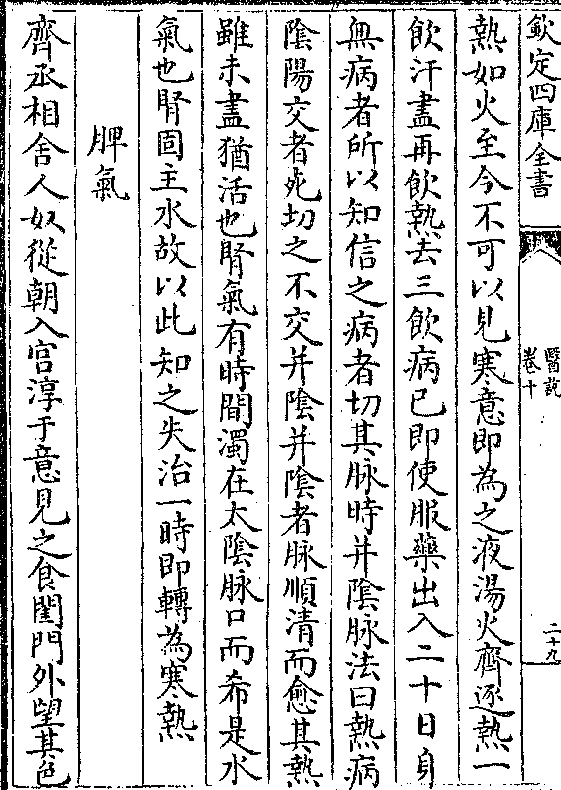 欽定四庫全書
醫說
卷十
二十九
熱如火至今不可以見寒意即為之液湯火齊逐熱一
飲汗盡再飲熱去三飲病已即使服藥出入二十日身
無病者所以知信之病者切其脉時并陰脉法曰熱病
陰陽交者死切之不交并陰并陰者脉順清而愈其熱
雖未盡猶活也腎氣有時間濁在太陰脉口而希是水
氣也腎固主水故以此知之失治一時即轉為寒熱
脾氣
齊丞相舍人奴從朝入宮淳于意見之食閨門外望其色